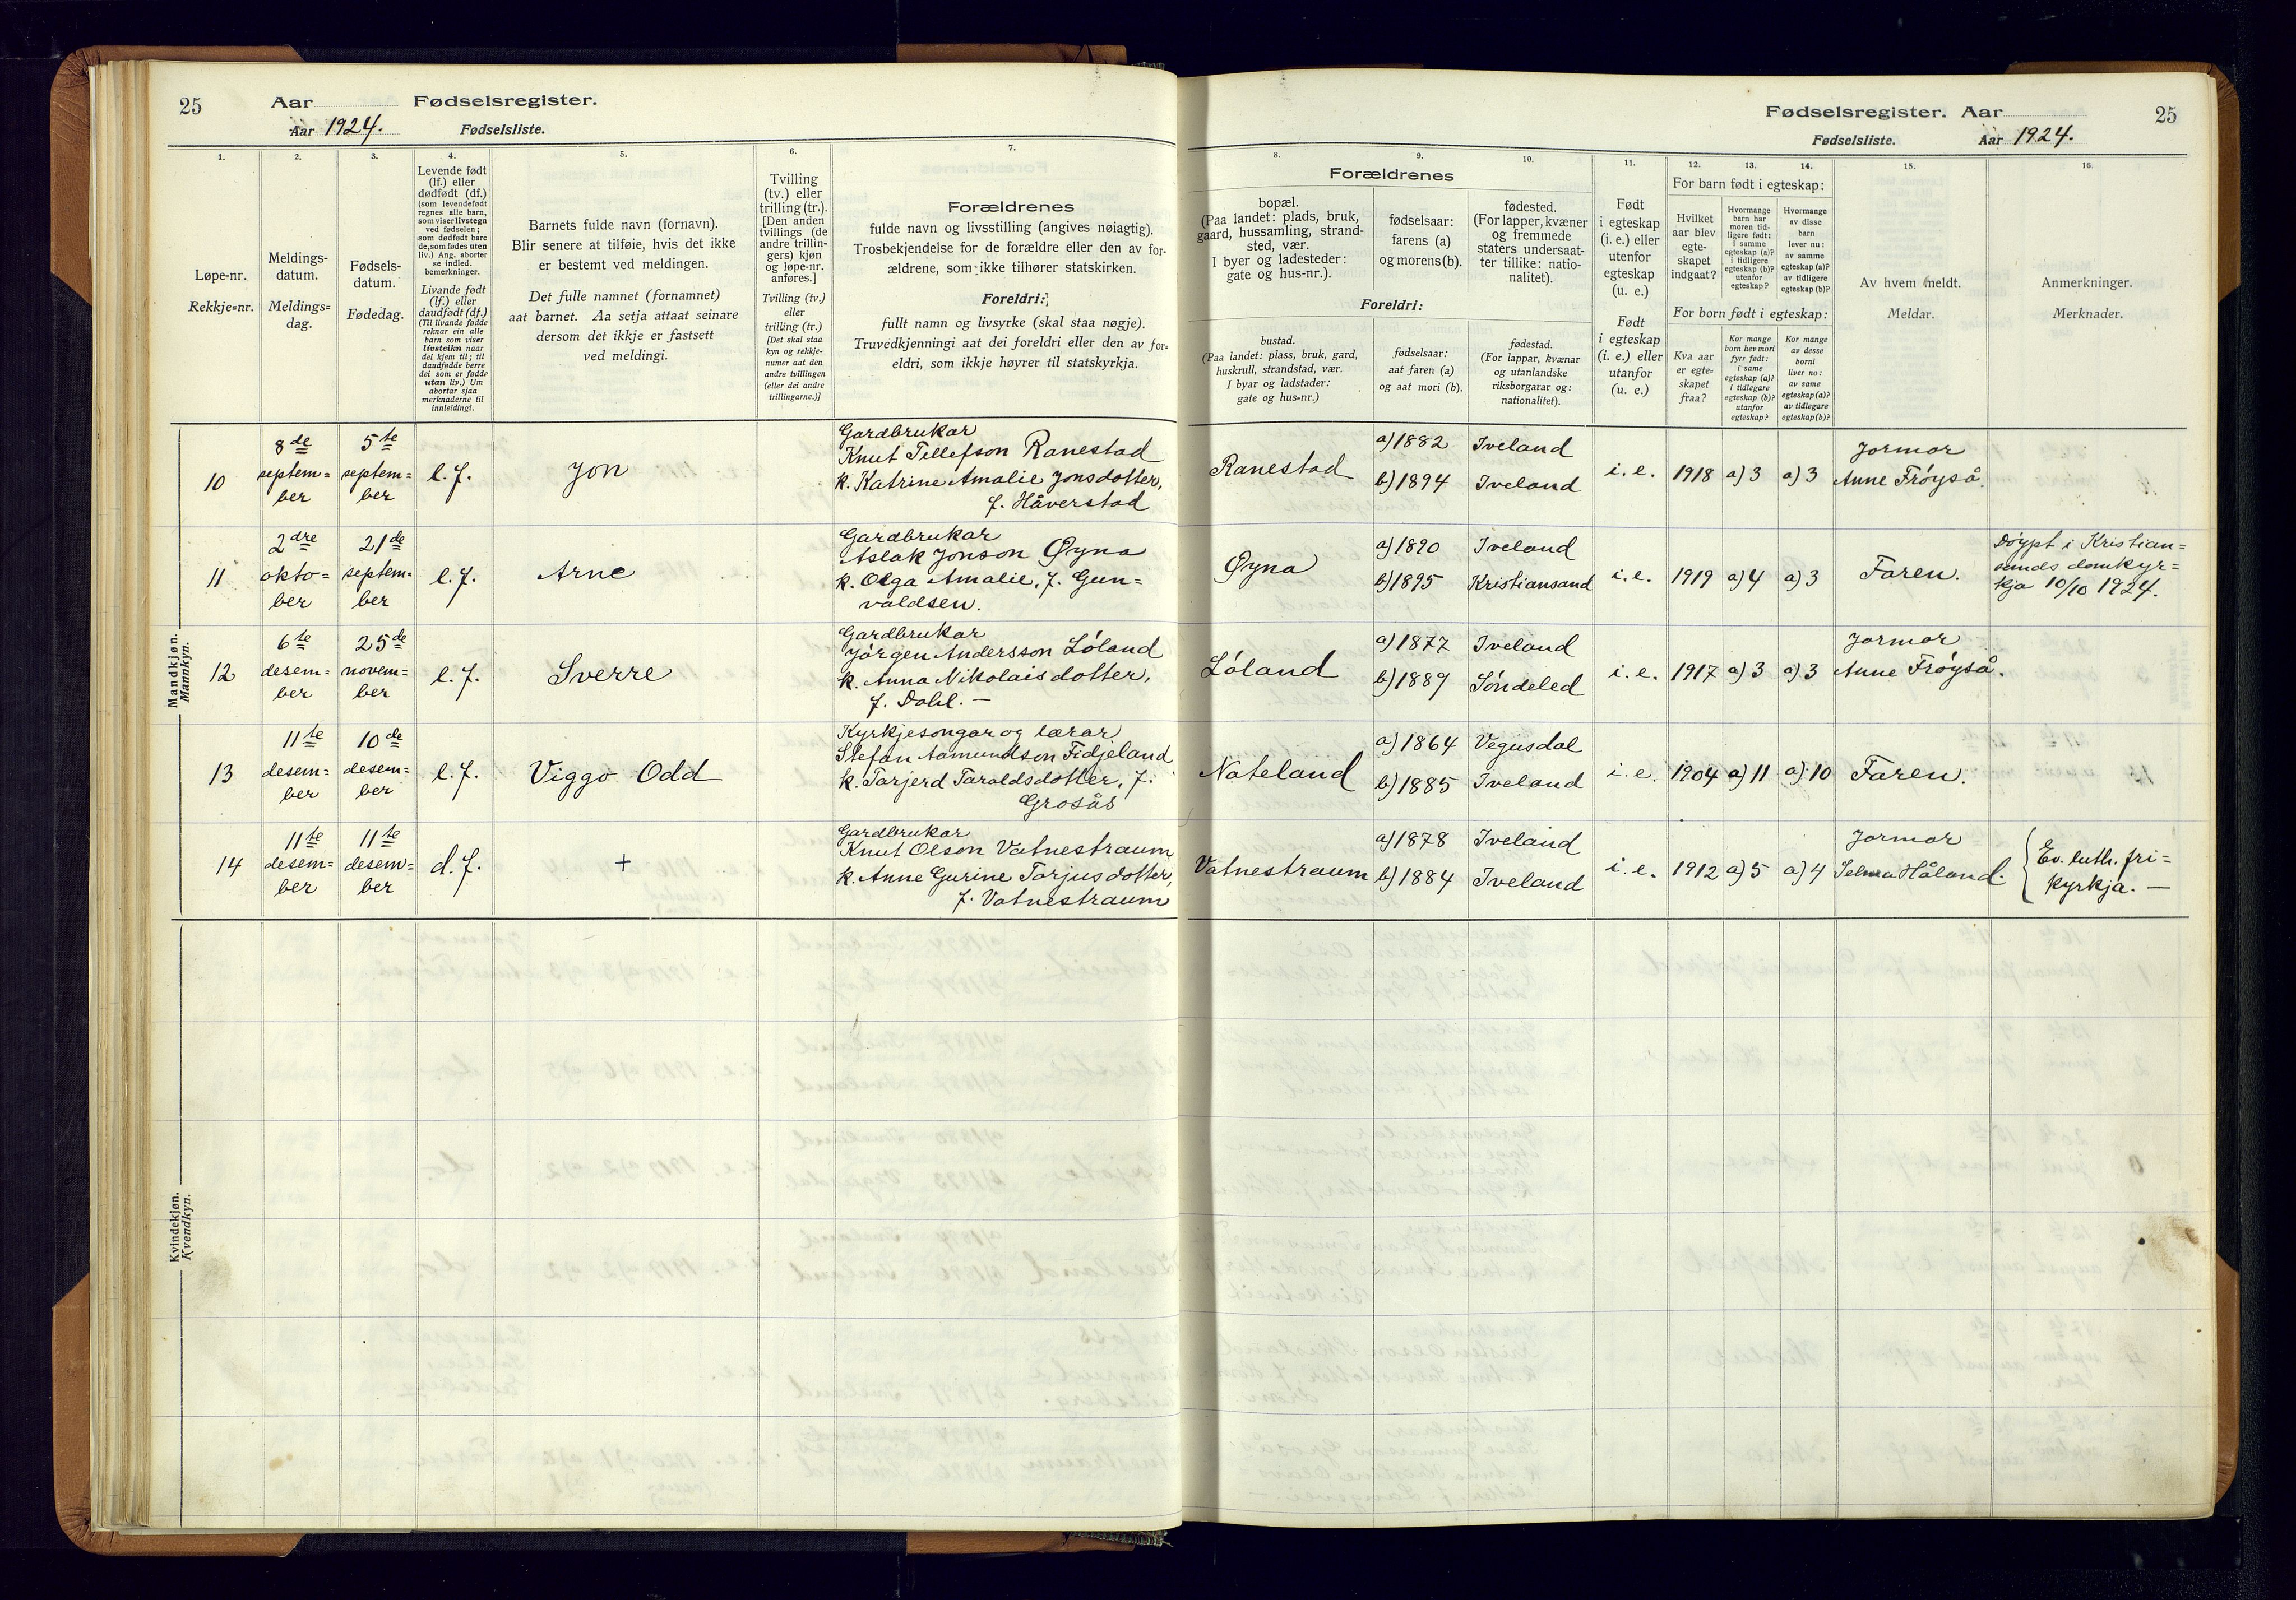 25 Aar Fødselsregister.
Aar 1924. Fødselsliste.
Fødselsregister. Aar 25
Fødselsliste. Aar 1924.
1.
Løpe-nr.
Rekkje=nr.
2.
Meldings-
datum.
Meldings=
dag.
3.
Fødsels-
datum.
Fødedag.
4.
Levende født
(lf.) eller
dødfødt (df.)
(som levendefødt
regnes alle barn,
som viser livstegn
ved fødselen;
som dødfødt bare
de, som fødes uten
liv.) Ang. aborter
se indled.
bemerkninger.
Livande født
(lf.) eller
daudfødt (df.)
(Til livande fødde
reknar ein alle
barn som viser
livsteikn naar
dei kjem til; til
daudfødde berre
dei som er fødde
utan liv.) Um
abortar sjaa
merknaderne til
innleidingi.
5.
Barnets fulde navn (fornavn).
Blir senere at tilføie, hvis det ikke
er bestemt ved meldingen.
Det fulle namnet (fornamnet)
aat barnet. Aa setja attaat seinare
dersom det ikkje er fastsett
ved meldingi.
6.
Tvilling
(tv.) eller
trilling (tr.).
[Den anden
tvillings (de
andre trillin-
gers) kjøn
og løpe-nr.
anføres.]
Tvilling (tv.)
eller
trilling (tr.)
[Det skal staa
kyn og rekkje-
numer aat den
andre tvillingen
(eller dei andre
trillingarne.)]
7.
Forældrenes
fulde navn og livsstilling (angives nøiagtig).
Trosbekjendelse for de forældre eller den av for-
ældrene, som ikke tilhører statskirken.
Foreldri:
fullt namn og livsyrke (skal staa nøgje).
Truvedkjenningi aat dei foreldri eller den av for=
eldri, som ikkje høyrer til statskyrkja.
8.
Forældrenes
bopæl.
(Paa landet: plads, bruk,
gaard, hussamling, strand-
sted, vær.
I byer og ladesteder:
gate og hus-nr.).
Foreldri:
bustad.
(Paa landet: plass, bruk, gard,
huskrull, strandstad, vær.
I byar og ladstader:
gate og hus=nr.)
9.
fødselsaar:
farens (a)
og morens (b).
fødselsaar:
aat faren (a)
og aat mori (b).
10.
fødested.
(For lapper, kvæner
og fremmede
staters undersaat-
ter tillike: natio-
nalitet).
fødestad.
(For lappar, kvænar
og utanlandske
riksborgarar og:
nationalitet).
11.
Født
i egteskap
(i. e.) eller
utenfor
egteskap
(u. e.)
Født
i egteskap
(i. e.) eller
utanfor
(u. e.)
12. 13. 14.
For barn født i egteskap:
Hvilket
aar blev
egte-
skapet
indgaat?
Hvormange
barn har
moren tid-
ligere født:
i samme
egteskap (a)?
i tidligere
egteskap (b)?
utenfor
egteskap?
Hvormange
av disse
barn
lever nu:
av samme
egteskap (a)?
av tidligere
egteskap (b)?
For born født i egteskap:
Kva aar
er egte=
skapet
fraa?
Kor mange
born hev mori
fyrr født:
i same
egteskap (a)?
i tidlegare
egteskap (b)?
utanfor
egteskap?
Kor mange
av desse
borni
liver no:
av same
egteskap (a)?
av tidlegare
egteskap (b)?
15.
Av hvem meldt.
Meldar.
16.
Anmerkninger.
Merknader.
Mandkjøn.
Mannkyn.
10
8de
septem=
ber
5te
septem=
ber
l. f.
Jon
Gardbrukar
Knut Tellefson Ranestad
k. Katrine Amalie Jonsdotter,
f. Håverstad
Ranestad
a) 1882
b) 1894
Iveland
Iveland
i. e. 1918 a) 3 a) 3
Jormor
Anne Frøyså.
11
2dre
okto=
ber
21de
septem=
ber
l. f.
Arne
Gardbrukar
Aslak Jonson Øyna
k. Olga Amalie, f. Gun=
valdsen.
Øyna
a) 1890
b) 1895
Iveland
Kristiansand
i. e. 1919 a) 4 a) 3
Faren.
Døypt i Kristian=
sands domkyr=
kja 10/10 1924.
12
6te
desem=
ber
25de
novem=
ber
l. f.
Sverre
Gardbrukar
Jørgen Andersson Løland
k. Anna Nikolaisdotter,
f. Dahl. —
Løland
a) 1877
b) 1889
Iveland
Søndeled
i. e. 1917 a) 3 a) 3
Jormor
Anne Frøyså.
13
11te
desem=
ber
10de
desem=
ber
l. f.
Viggo Odd
Kyrkjesongar og lærar
Stefan Aamundson Fidjeland
k. Tarjerd Taraldsdotter, f.
Grosås
Nateland
a) 1864
b) 1885
Vegusdal
Iveland
i. e. 1904 a) 11 a) 10
Faren.
14
11te
desem=
ber
11te
desem=
ber
d. f.
+
Gardbrukar
Knut Olson Vatnestraum
k. Anne Gurine Tarjusdotter,
f. Vatnestraum
Vatnestraum
a) 1878
b) 1884
Iveland
Iveland
i. e. 1912 a) 5 a) 4
Jormor
Selma Håland.
Ev. luth. fri=
kyrkja. —
Kvindekjøn.
Kvendkyn.